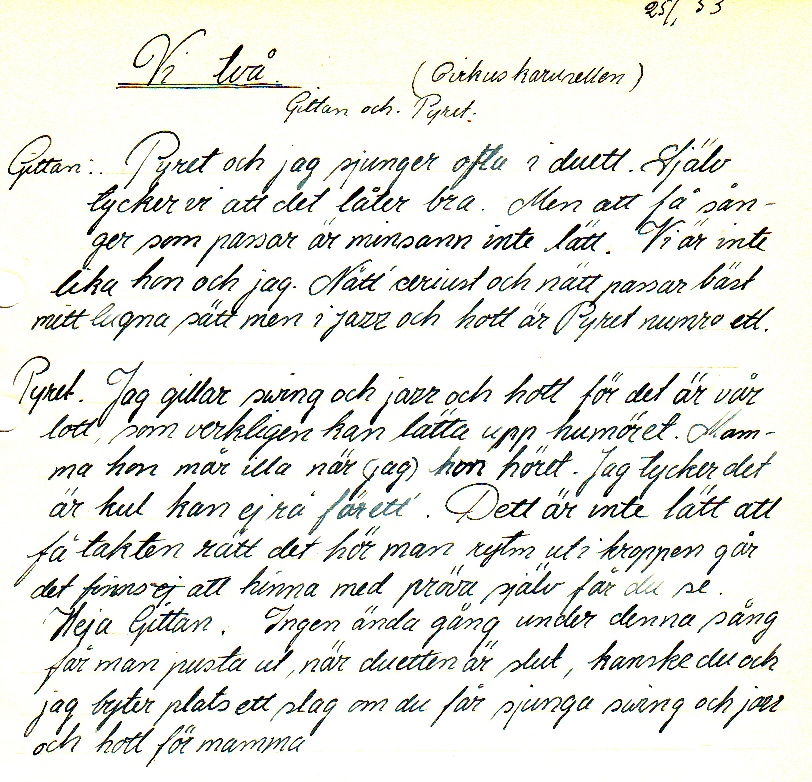 25/1 53
Vi två. (Cirkuskarusellen)
Gittan och Pyret.
Gittan: Pyret och jag sjunger ofta i duett. Själv
tycker vi att det låter bra. Men att få sån-
ger som passar är minsann inte lätt. Vi är inte
lika hon och jag. Nått ceriust och nätt passar bäst
mitt lugna sätt men i jazz och hott är Pyret numro ett.
Pyret. Jag gillar swing och jazz och hott för det är vår
lott, som verkligen kan lätta upp humöret. Mam-
ma hon mår illa när (jag) hon höret. Jag tycker det
är kul kan ej rå förett. Dett är inte lätt att
få takten rätt det hör man rytm ut i kroppen går
det finns ej att hinna med pröva själv får du se.
Heja Gittan. Ingen ända gång under denna sång
får man pusta ut, när duetten är slut, kanske du och
jag byter plats ett slag om du får sjunga swing och jazz
och hott för mamma